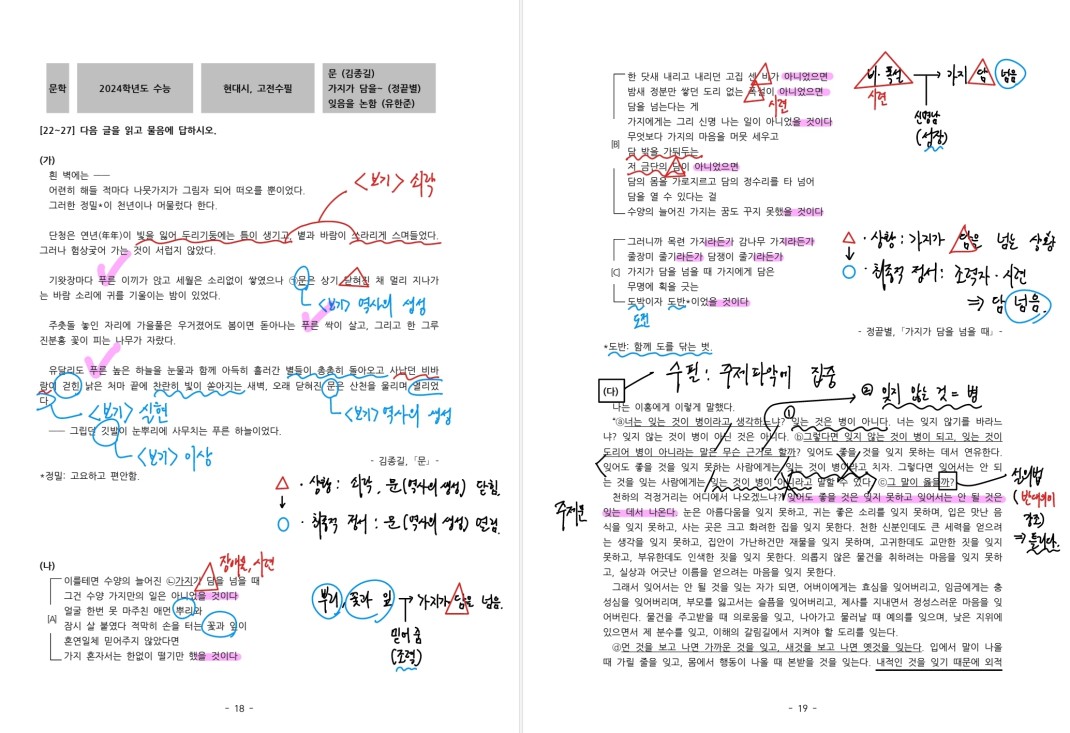 문학
2024학년도 수능
현대시, 고전수필
문 (김종길)
가지가 담을~ (정끝별)
잊음을 논함 (유한준)
[22~27] 다음 글을 읽고 물음에 답하시오.
(가)
흰 벽에는 ──
어련히 해들 적마다 나뭇가지가 그림자 되어 떠오를 뿐이었다.
그러한 정밀*이 천년이나 머물렀다 한다.
<보기> 쇠락
단청은 연년(年年)이 빛을 잃어 두리기둥에는 틈이 생기고, 볕과 바람이 쓰라리게 스며들었다.
그러나 험상궂어 가는 것이 서럽지 않았다.
기왓장마다 푸른 이끼가 앉고 세월은 소리없이 쌓였으나 ㉠문은 상기 닫혀진 채 멀리 지나가
는 바람 소리에 귀를 기울이는 밤이 있었다.
<보기> 역사의 생성
주춧돌 놓인 자리에 가을풀은 우거졌어도 봄이면 돋아나는 푸른 싹이 살고, 그리고 한 그루
진분홍 꽃이 피는 나무가 자랐다.
유달리도 푸른 높은 하늘을 눈물과 함께 아득히 흘러간 별들이 총총히 돌아오고 사납던 비바
람이 걷힌 낡은 처마 끝에 찬란히 빛이 쏟아지는 새벽, 오래 닫혀진 문은 산천을 울리며 열리었
다.
<보기> 실현
<보기> 역사의 생성
── 그립던 깃발이 눈뿌리에 사무치는 푸른 하늘이었다.
<보기> 이상
- 김종길, 「문」 -
*정밀: 고요하고 편안함.
△ · 상황 : 쇠락, 문(역사의 생성) 닫힘.
↓
○ · 최종적 정서 : 문(역사의 생성) 열림.
장애물, 시련
(나)
이를테면 수양의 늘어진 ㉡가지가 담을 넘을 때
그건 수양 가지만의 일은 아니었을 것이다
얼굴 한번 못 마주친 애먼 뿌리와
[A]
잠시 살 붙였다 적막히 손을 터는 꽃과 잎이
혼연일체 믿어주지 않았다면
가지 혼자서는 한없이 떨기만 했을 것이다
뿌리, 꽃과 잎 → 가지가 담을 넘음.
믿어 줌
(조력)
- 18 -
한 닷새 내리고 내리던 고집 센 비가 아니었으면
밤새 정분만 쌓던 도리 없는 폭설이 아니었으면
시련
담을 넘는다는 게
가지에게는 그리 신명 나는 일이 아니었을 것이다
무엇보다 가지의 마음을 머뭇 세우고
[B]
담 밖을 가둬두는
저 금단의 담이 아니었으면
담의 몸을 가로지르고 담의 정수리를 타 넘어
담을 열 수 있다는 걸
수양의 늘어진 가지는 꿈도 꾸지 못했을 것이다
비·폭설 → 가지 담 넘음
시련
신명남
(성장)
그러니까 목련 가지라든가 감나무 가지라든가
줄장미 줄기라든가 담쟁이 줄기라든가
[C]
가지가 담을 넘을 때 가지에게 담은
무명에 획을 긋는
도박이자 도반*이었을 것이다
도전
△ · 상황 : 가지가 담을 넘는 상황
↓
○ · 최종적 정서 : 조력자·시련
⇒ 담 넘음.
- 정끝별, 「가지가 담을 넘을 때」 -
*도반: 함께 도를 닦는 벗.
(다)
수필 : 주제파악에 집중
② 잊지 않는 것 = 병
①
나는 이홍에게 이렇게 말했다.
“ⓐ너는 잊는 것이 병이라고 생각하느냐? 잊는 것은 병이 아니다. 너는 잊지 않기를 바라느
냐? 잊지 않는 것이 병이 아닌 것은 아니다. ⓑ그렇다면 잊지 않는 것이 병이 되고, 잊는 것이
도리어 병이 아니라는 말은 무슨 근거로 할까? 잊어도 좋을 것을 잊지 못하는 데서 연유한다.
잊어도 좋을 것을 잊지 못하는 사람에게는 잊는 것이 병이라고 치자. 그렇다면 잊어서는 안 되
는 것을 잊는 사람에게는 잊는 것이 병이 아니라고 말할 수 있다. ⓒ그 말이 옳을까?
설의법
(반대의미
강조)
⇒ 틀리다.
주제문
천하의 걱정거리는 어디에서 나오겠느냐? 잊어도 좋을 것은 잊지 못하고 잊어서는 안 될 것은
잊는 데서 나온다. 눈은 아름다움을 잊지 못하고, 귀는 좋은 소리를 잊지 못하며, 입은 맛난 음
식을 잊지 못하고, 사는 곳은 크고 화려한 집을 잊지 못한다. 천한 신분인데도 큰 세력을 얻으려
는 생각을 잊지 못하고, 집안이 가난하건만 재물을 잊지 못하며, 고귀한데도 교만한 짓을 잊지
못하고, 부유한데도 인색한 짓을 잊지 못한다. 의롭지 않은 물건을 취하려는 마음을 잊지 못하
고, 실상과 어긋난 이름을 얻으려는 마음을 잊지 못한다.
그래서 잊어서는 안 될 것을 잊는 자가 되면, 어버이에게는 효심을 잊어버리고, 임금에게는 충
성심을 잊어버리며, 부모를 잃고서는 슬픔을 잊어버리고, 제사를 지내면서 정성스러운 마음을 잊
어버린다. 물건을 주고받을 때 의로움을 잊고, 나아가고 물러날 때 예의를 잊으며, 낮은 지위에
있으면서 제 분수를 잊고, 이해의 갈림길에서 지켜야 할 도리를 잊는다.
ⓓ먼 것을 보고 나면 가까운 것을 잊고, 새것을 보고 나면 옛것을 잊는다. 입에서 말이 나올
때 가릴 줄을 잊고, 몸에서 행동이 나올 때 본받을 것을 잊는다. 내적인 것을 잊기 때문에 외적
- 19 -